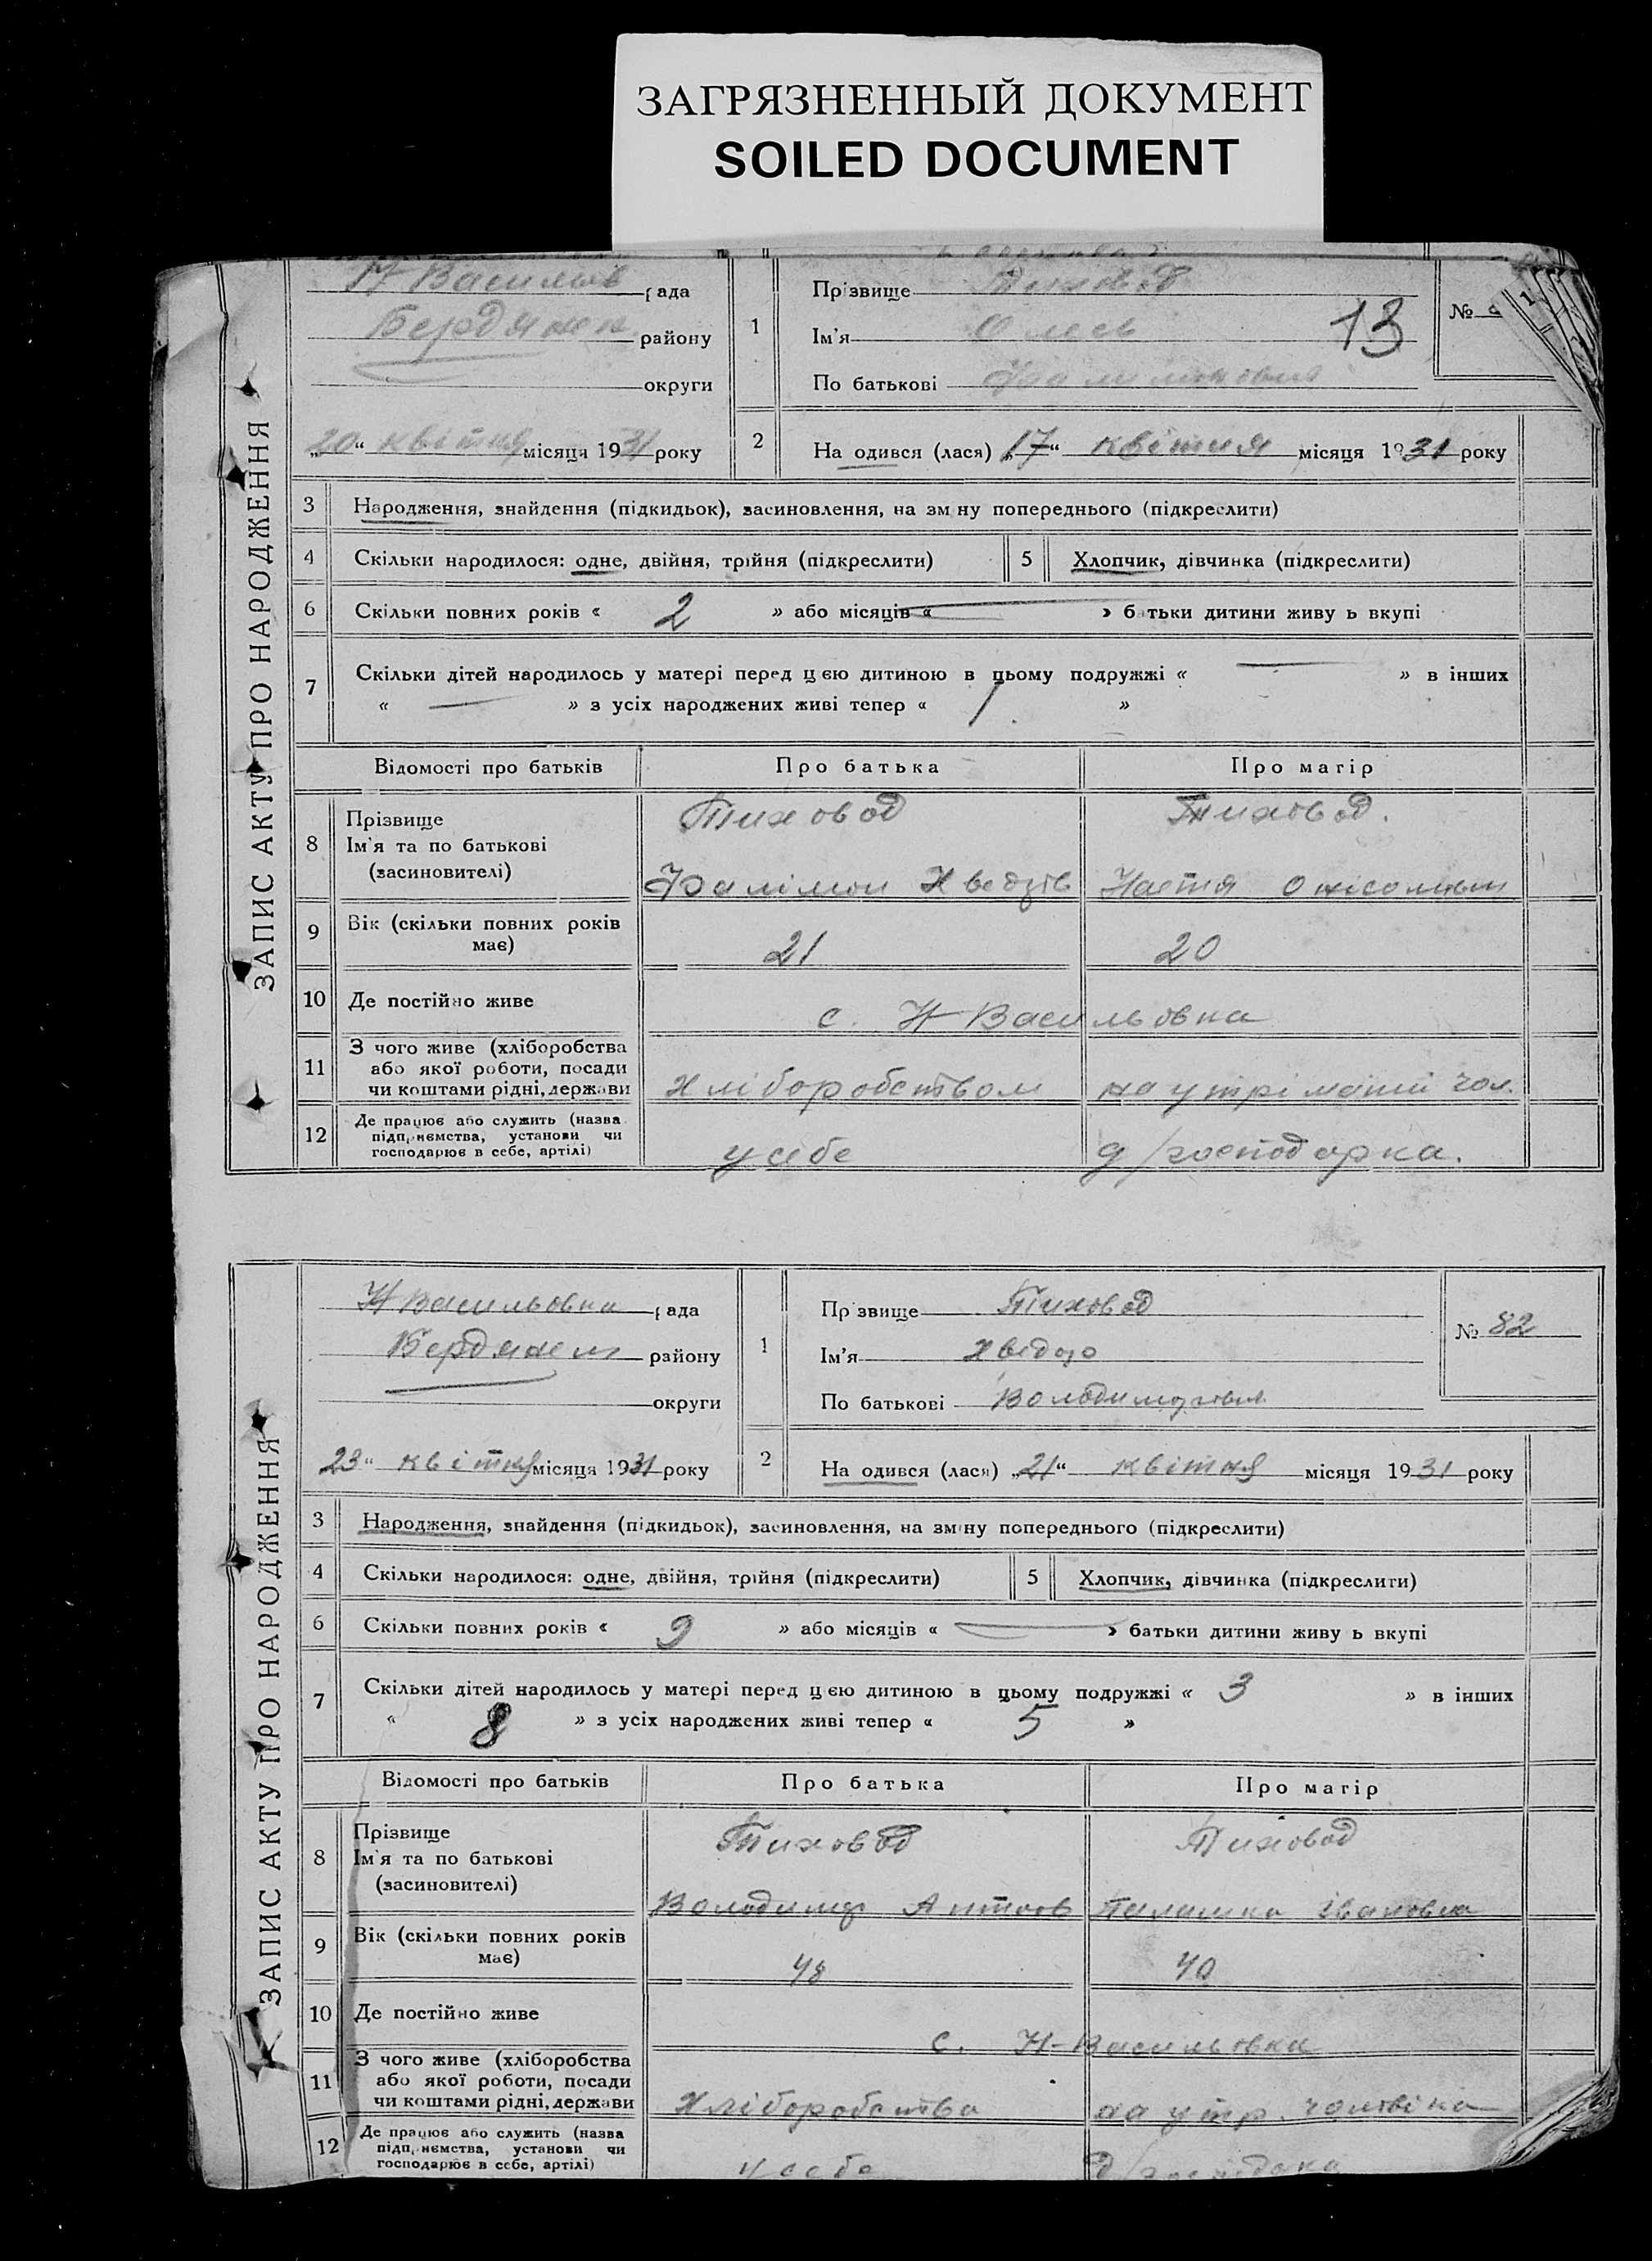 ЗАГРЯЗНЕННЫЙ ДОКУМЕНТ
SOILED DOCUMENT
ЗАПИС АКТУ ПРО НАРОДЖЕННЯ
Н Васильов рада
Бердянск району
округи
„20“ квітня місяця 1931 року
1
Прізвище Тиховод
Ім'я Олесь
По батькові
13
№
2 На одився (лася) „17“ квітня місяця 1931 року
3 Народження, знайдення (підкидьок), засиновлення, на зміну попереднього (підкреслити)
4 Скільки народилося: одне, двійня, трійня (підкреслити) 5 Хлопчик, дівчинка (підкреслити)
6 Скільки повних років « 2 » або місяців « — » батьки дитини живу ь вкупі
7 Скільки дітей народилось у матері перед цією дитиною в цьому подружжі « — » в інших
« — » з усіх народжених живі тепер « 1 »
Відомості про батьків Про батька Про матір
8 Прізвище
Ім'я та по батькові
(засиновителі)
Тиховод Тиховод.
Фалімон Хведрів Настя
9 Вік (скільки повних років має) 21 20
10 Де постійно живе с. Н Васильовка
11 З чого живе (хліборобства
або якої роботи, посади
чи коштами рідні, держави
хліборобством на утріманні чол.
12 Де працює або служить (назва
підприємства, установи чи
господарює в себе, артілі)
у себе д/господарка.
ЗАПИС АКТУ ПРО НАРОДЖЕННЯ
Н Васильовка рада
Бердянск району
округи
„23“ квітня місяця 1931 року
1
Прізвище Тиховод
Ім'я Хведор
По батькові Володимирович
№ 82
2 На одився (лася) „21“ квітня місяця 1931 року
3 Народження, знайдення (підкидьок), засиновлення, на зміну попереднього (підкреслити)
4 Скільки народилося: одне, двійня, трійня (підкреслити) 5 Хлопчик, дівчинка (підкреслити)
6 Скільки повних років « 9 » або місяців « — » батьки дитини живу ь вкупі
7 Скільки дітей народилось у матері перед цією дитиною в цьому подружжі « 3 » в інших
« 8 » з усіх народжених живі тепер « 5 »
Відомості про батьків Про батька Про матір
8 Прізвище
Ім'я та по батькові
(засиновителі)
Тиховод Тиховод
Володимир Антонов Палашка Івановна
9 Вік (скільки повних років має) 48 40
10 Де постійно живе с. Н-Васильовка
11 З чого живе (хліборобства
або якої роботи, посади
чи коштами рідні, держави
Хліборобство на утр. чоловіка
12 Де працює або служить (назва
підприємства, установи чи
господарює в себе, артілі)
у себе д/господарка